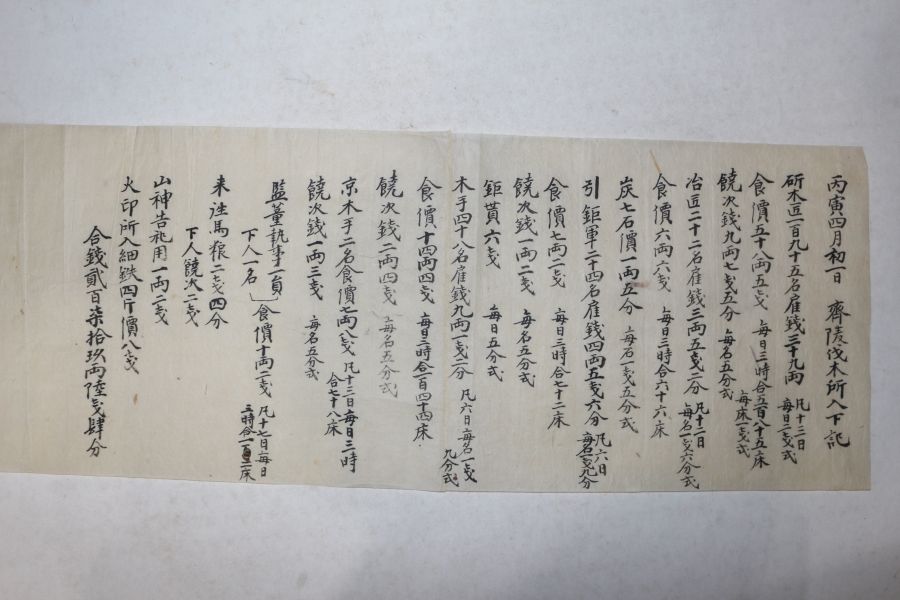 丙寅四月初一日 齊陵伐木所入下記
斫木匠一百九十五名雇錢三十九両 凡十三日
每日二戔式
食價五十八両五戔 每日三時合五百八十五床
每床一戔式
饒次錢九両七戔五分 每名五分式
冶匠二十二名雇錢三両五戔二分 凡十一日
每名一戔六分式
食價六両六戔 每日三時合六十六床
炭七石價一両五分 每石一戔五分式
引鉅軍二十四名雇錢四両五戔六分 凡六日
每名一戔九分
食價七両二戔 每日三時合七十二床
饒次錢一両二戔 每名五分式
鉅貰六戔 每日五分式
木手四十八名雇錢九両一戔二分 凡六日每名一戔
九分式
食價十四両四戔 每日三時合一百四十四床
饒次錢二両四戔 每名五分式
京木手二名食價七両八戔 凡十三日每日三時
合七十八床
饒次錢一両三戔 每名五分式
監董執事一員
下人一名 食價十両二戔 凡十七日每日
三時合一百二床
来往馬粮二戔四分
下人饒次二戔
山神告祀用一両二戔
火印所入細鉄四斤價八戔
合錢貳百柒拾玖両陸戔肆分